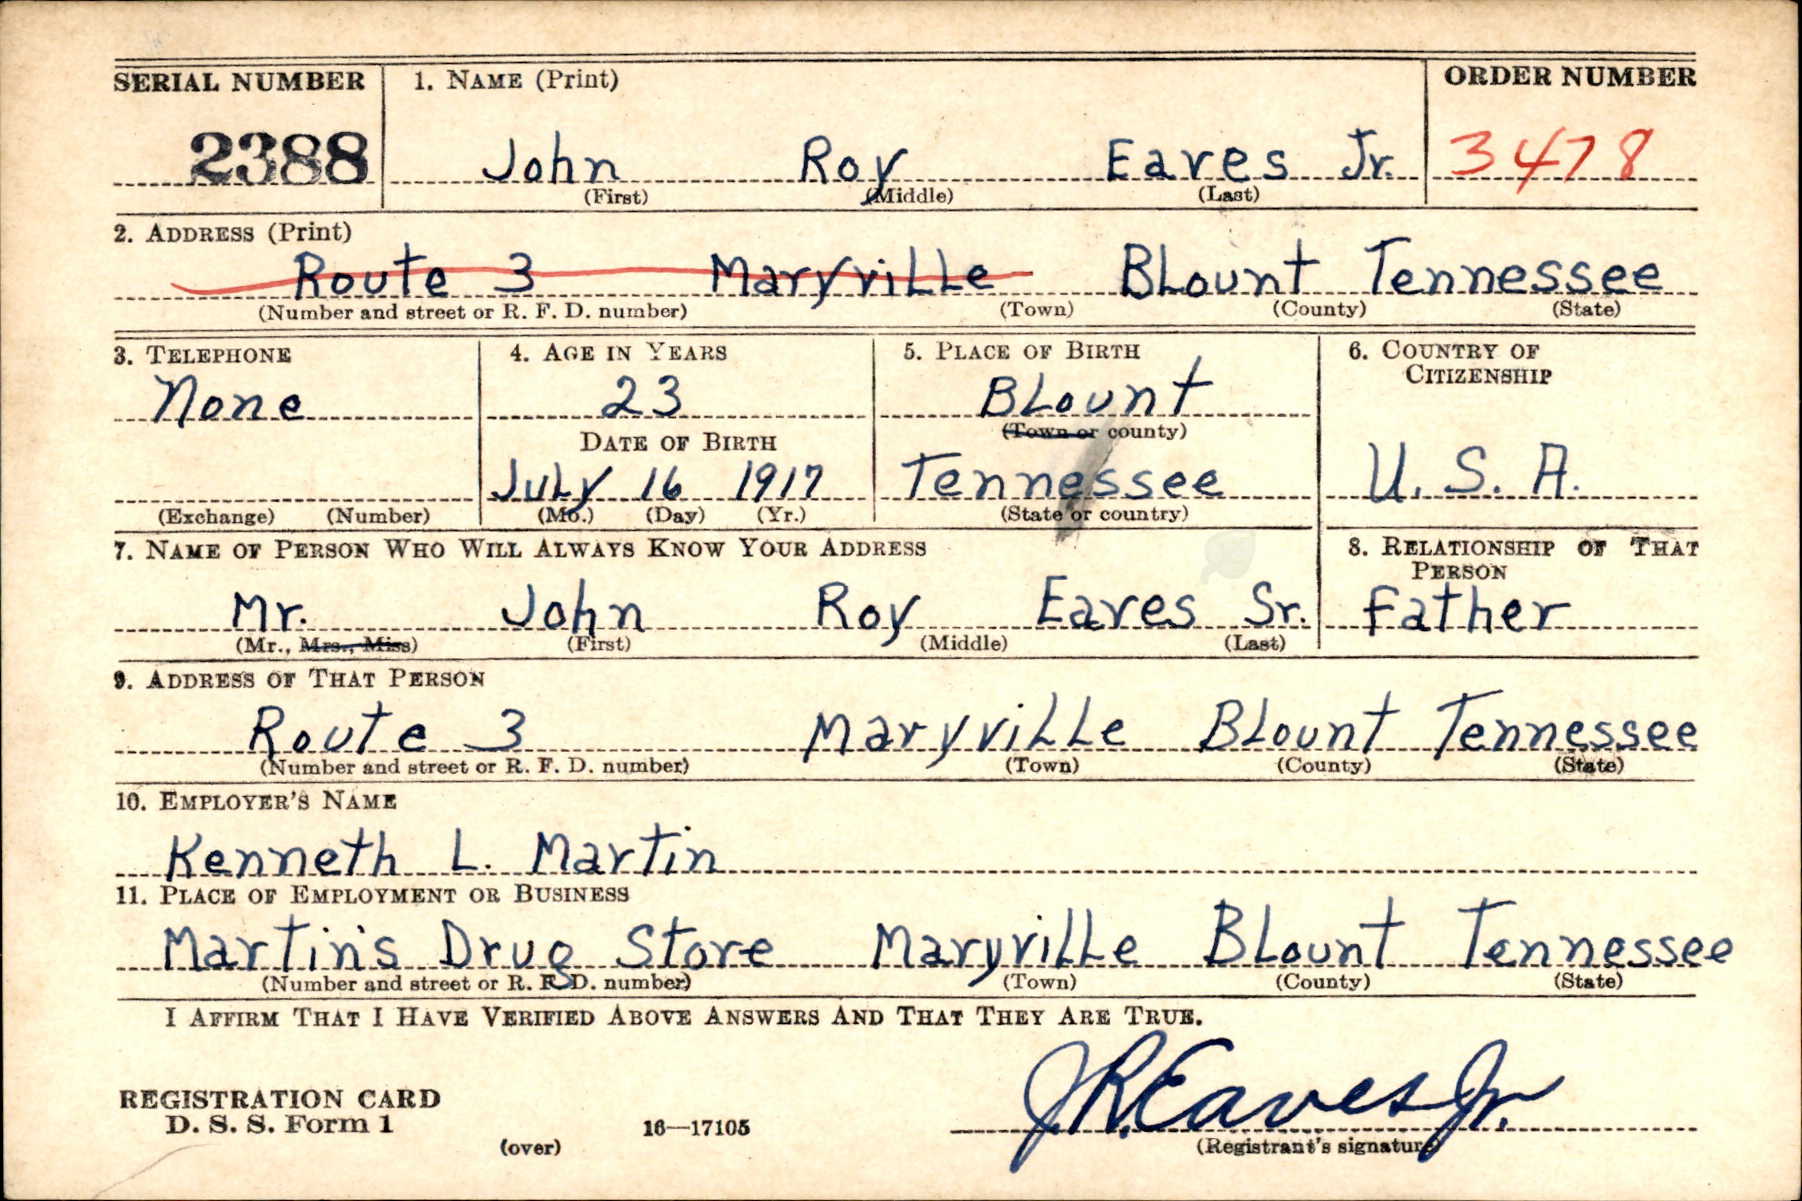 SERIAL NUMBER 1. NAME (Print) ORDER NUMBER
2388 John Roy Eaves Jr. 3478
(First) (Middle) (Last)
2. ADDRESS (Print)
Route 3 Maryville Blount Tennessee
(Number and street or R. F. D. number) (Town) (County) (State)
3. TELEPHONE 4. AGE IN YEARS 5. PLACE OF BIRTH 6. COUNTRY OF
CITIZENSHIP
None 23 Blount
DATE OF BIRTH (Town or county)
July 16 1917 Tennessee U. S. A.
(Exchange) (Number) (Mo.) (Day) (Yr.) (State or country)
7. NAME OF PERSON WHO WILL ALWAYS KNOW YOUR ADDRESS 8. RELATIONSHIP OF THAT
PERSON
Mr. John Roy Eaves Sr. Father
(Mr., Mrs., Miss) (First) (Middle) (Last)
9. ADDRESS OF THAT PERSON
Route 3 Maryville Blount Tennessee
(Number and street or R. F. D. number) (Town) (County) (State)
10. EMPLOYER'S NAME
Kenneth L. Martin
11. PLACE OF EMPLOYMENT OR BUSINESS
Martin's Drug Store Maryville Blount Tennessee
(Number and street or R. F. D. number) (Town) (County) (State)
I AFFIRM THAT I HAVE VERIFIED ABOVE ANSWERS AND THAT THEY ARE TRUE.
J.R. Eaves Jr.
REGISTRATION CARD
D. S. S. Form 1
(over) 16—17105 (Registrant's signature)